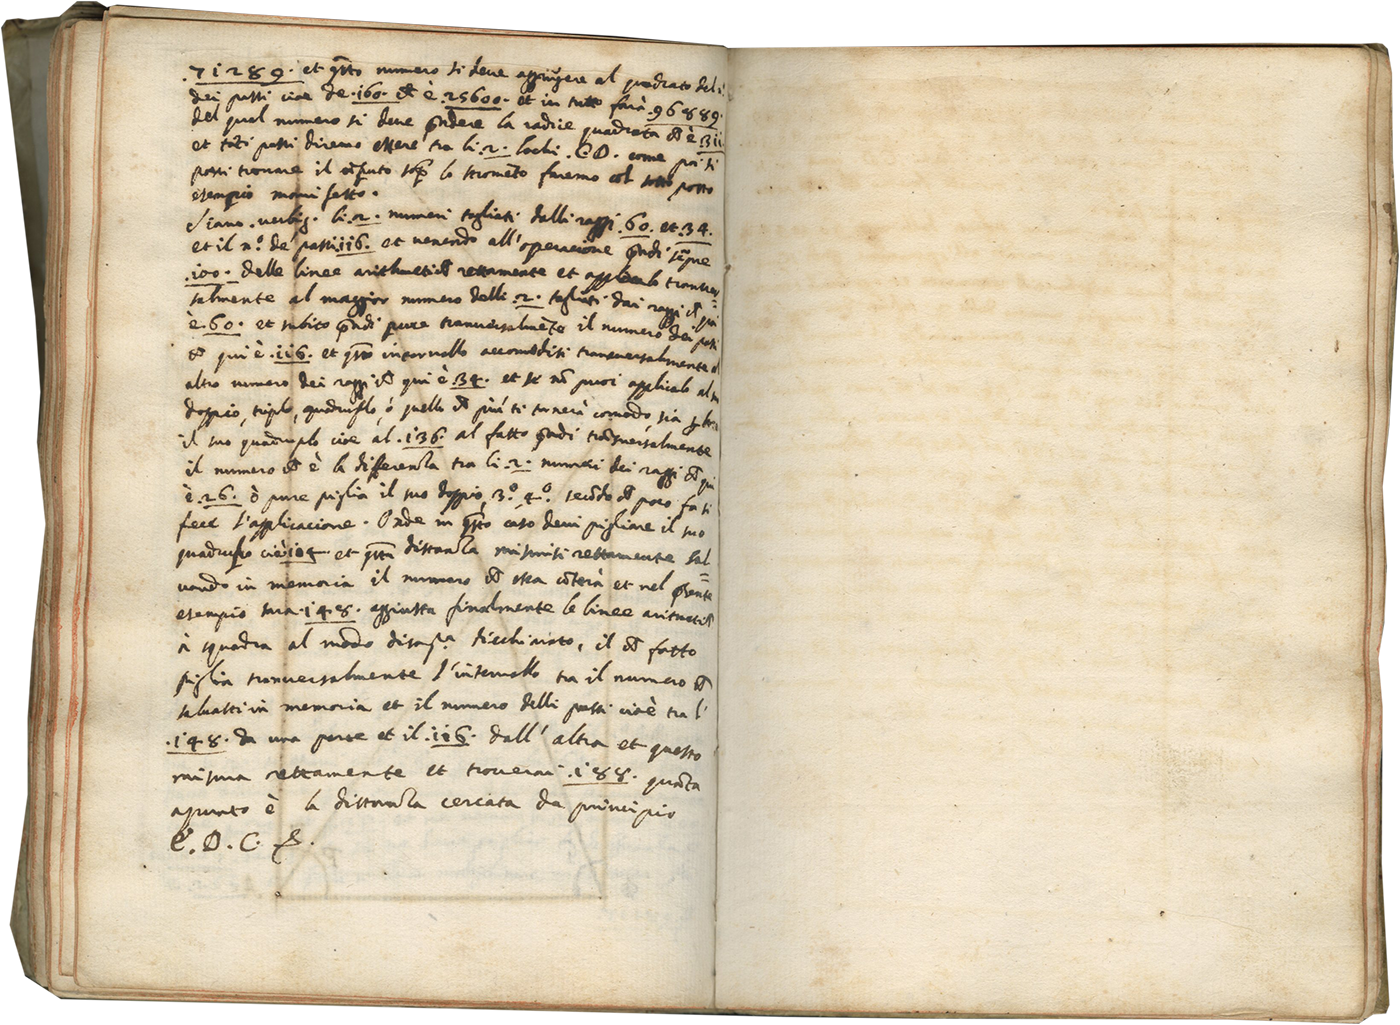 .71289. et q̃sto numero si deve aggiugere al quadrato del n.º
dei passi, cioe de .160. ch̃ è .25600. et in tutto farà .96889.
del qual numero si deve p̃ndere la radice quadrata ch̃ è 311
et toti passi diremo essere tra li .2. lochi .C D. come poi si
possi trovare il cõputo sop̃ lo stromẽto faremo col sotto posto
esempio manifesto.
Siano .verbig. li .2. numeri tagliati dalli raggi .60. et .34.
et il n.º de passi .116. et venendo all'operacione p̃ndi sẽpre
.100. delle linee arithmetich̃ rettamente et applicalo transver=
salmente al maggior numero delli .2. tagliati dai raggi ch̃ qui
è .60. et subito p̃ndi pure transversalmẽte il numero dei passi
ch̃ qui è .116. et q̃sto intervallo accomodisi transversalmente al
altro numero dei raggi ch̃ qui è .34. et se nõ puoi applicalo al suo
doppio, triplo, quadruplo, ó quello ch̃ più ti tornerà comodo, sia
il suo quadruplo cioe al .136. al fatto p̃ndi trãsversalmente
il numero ch̃ è la differenza tra li .2. numeri dei raggi ch̃ qui
è .26. ò pure piglia il suo doppio, 3.º 4.º secõdo ch̃ poco fa si
fece l'applicacione. Onde in q̃sto caso devi pigliare il suo
quadruplo cioè .104. et q̃sta distanza misurisi rettamente sal=
vando in memoria il numero ch̃ essa cõterà et nel p̃sente
esempio sara .148. aggiusta finalmente le linee aritmetich̃
à squadra al modo di sop.ª dicchiarato, il ch̃ fatto
piglia transversalmente l'intervallo tra il numero ch̃
salvasti in memoria et il numero delli passi cioè tra l'
.148. da una parte et il .116. dall'altra et questo
misura rettamente et troverai .188. quãta
apunto è la distanza cercata da principio
C. D. C. S.